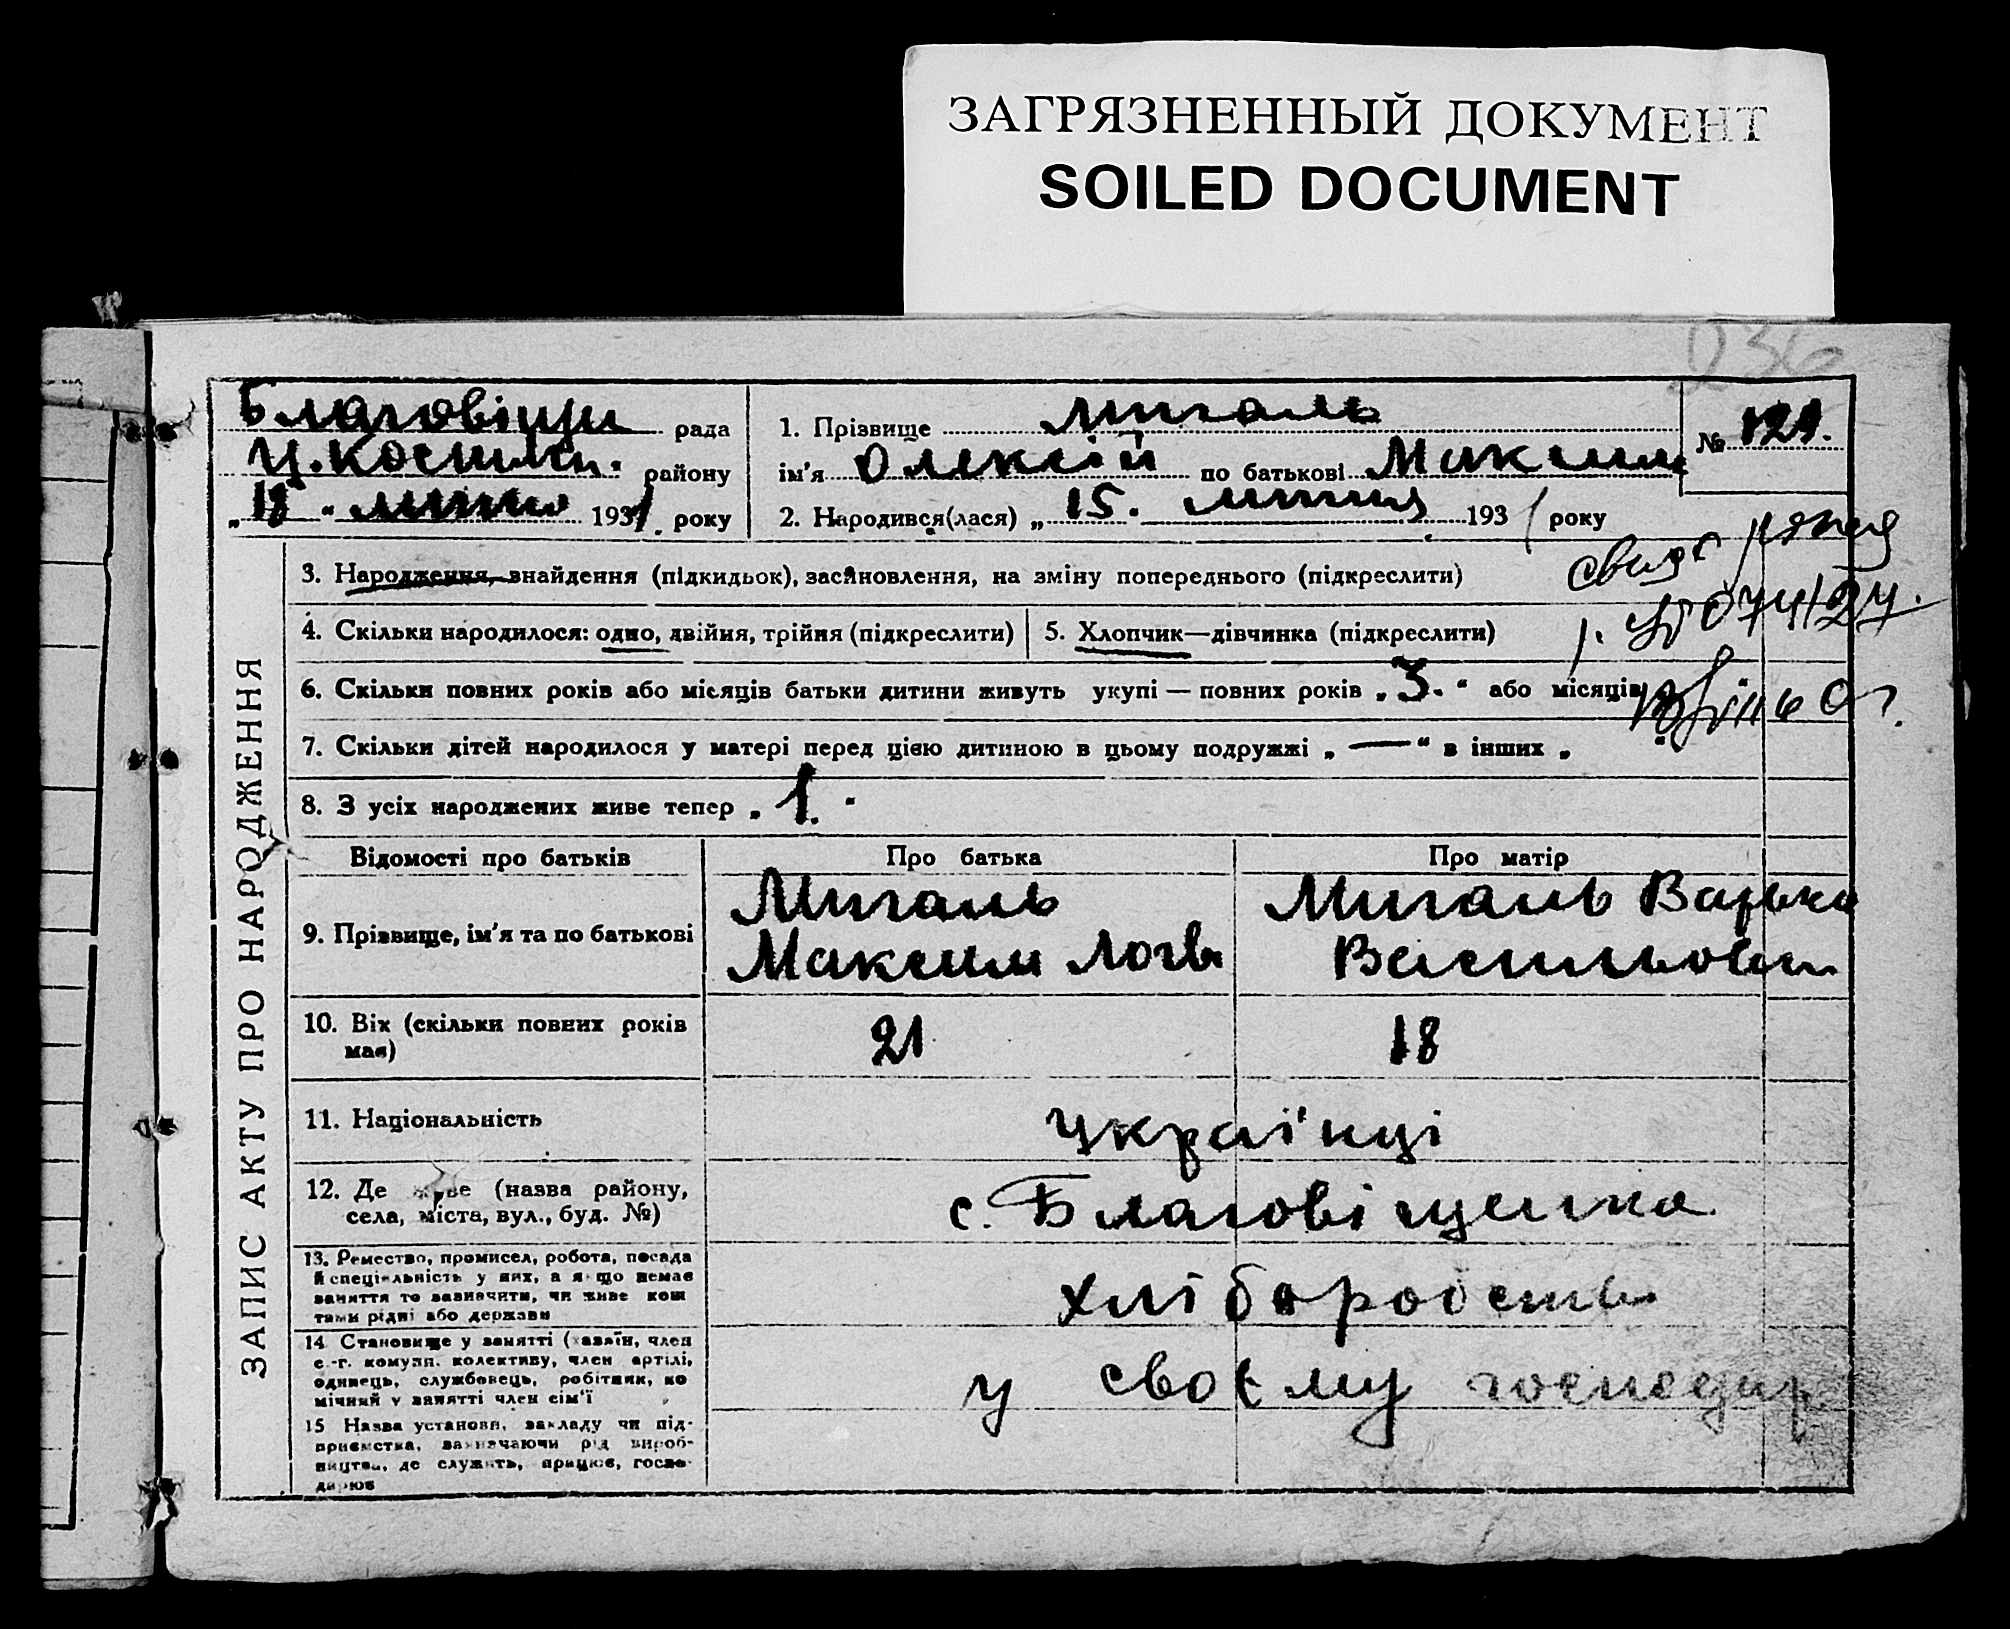 ЗАГРЯЗНЕННЫЙ ДОКУМЕНТ
SOILED DOCUMENT
036
Благовіщи рада
района
„18“ 1931 року
1. Прізвище Мигаль
ім'я Олексій по батькові Максим
2. Народився(лася) „15. 1931 року
№ 121.
3. Народження, знайдення (підкидьок), засиновлення, на зміну попереднього (підкреслити)
4. Скільки народилося: одно, двійня, трійня (підкреслити)
5. Хлопчик—дівчинка (підкреслити)
6. Скільки повних років або місяців батьки дитини живуть укупі — повних років „3.“ або місяців
7. Скільки дітей народилося у матері перед цією дитиною в цьому подружжі „—“ в інших „
8. З усіх народжених живе тепер „1.“
ЗАПИС АКТУ ПРО НАРОДЖЕННЯ
Відомості про батьків
Про батька
Про матір
9. Прізвище, ім'я та по батькові
Мигаль
Максим Логв
Мигаль Варька
Васильовн
10. Вік (скільки повних років
має)
21
18
11. Національність
Українці
12. Де живе (назва району,
села, міста, вул., буд. №)
с. Благовіщенка
13. Ремество, промисел, робота, посада
й спеціяльність у них, а якщо немає
заняття то зазначити, чи живе кош
тами рідні або держави
хліборобств
14 Становище у занятті (хазяїн, член
с.-г. комуни, колективу, член артілі,
одинець, службовець, робітник, по
мічний у занятті член сім'ї
у своєму господар
15 Назва установи, закладу чи під-
приємства, зазначаючи рід вироб-
ництва, де служить, працює, госпо-
дарює